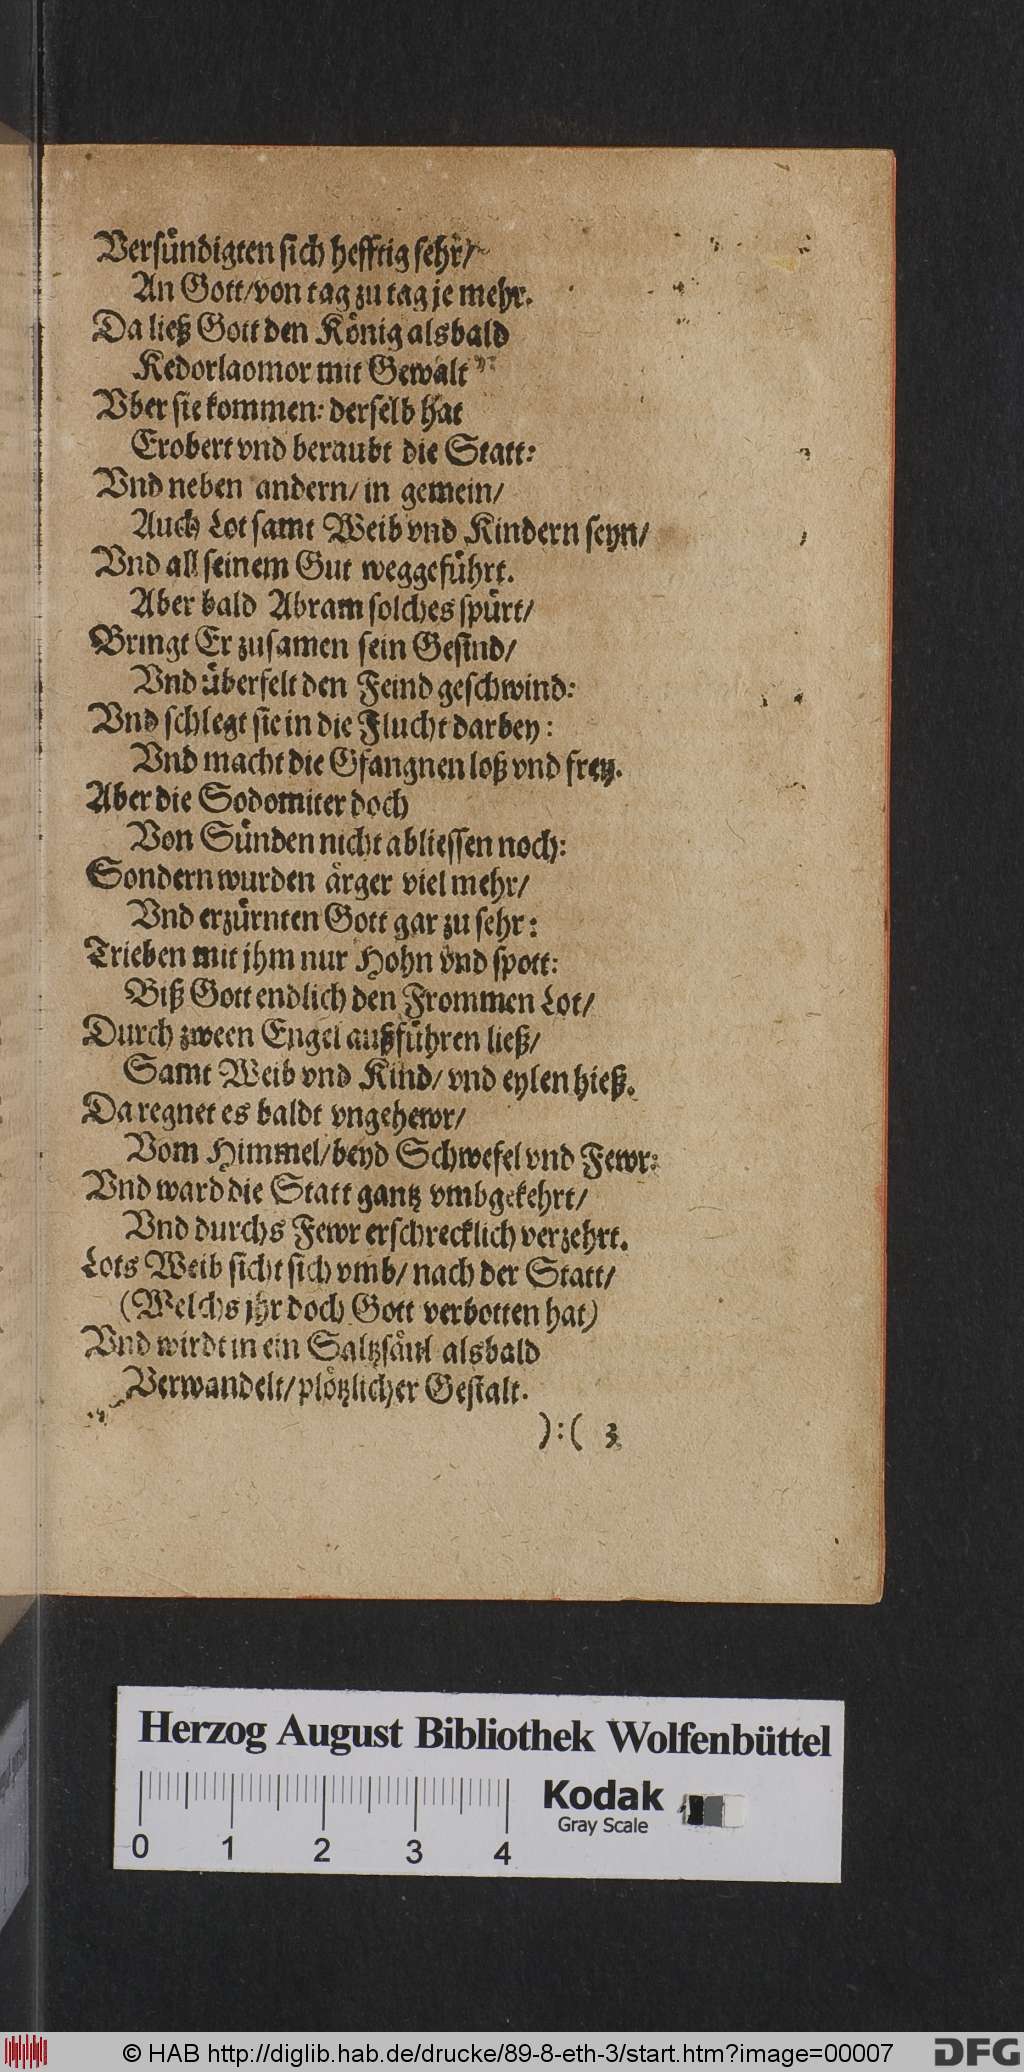 Versündigten sich hefftig sehr/
An Gott/ von tag zu tag je mehr.
Da ließ Gott den König alsbald
Kedorlaomor mit Gewalt
Vber sie kommen: derselb hat
Erobert vnd beraubt die Statt:
Vnd neben andern/ in gemein/
Auch Lot samt Weib vnd Kindern seyn/
Vnd all seinem Gut weggeführt.
Aber bald Abram solches spürt/
Bringt Er zusamen sein Gesind/
Vnd überfelt den Feind geschwind:
Vnd schlegt sie in die Flucht darbey:
Vnd macht die Gfangnen loß vnd frey.
Aber die Sodomiter doch
Von Sünden nicht abliessen noch:
Sondern wurden ärger viel mehr/
Vnd erzürnten Gott gar zu sehr:
Trieben mit jhm nur Hohn vnd spott:
Biß Gott endlich den Frommen Lot/
Durch zween Engel außführen ließ/
Samt Weib vnd Kind/ vnd eylen hieß.
Da regnet es baldt vngehewr/
Vom Himmel/ beyd Schwefel vnd Fewr:
Vnd ward die Statt gantz vmbgekehrt/
Vnd durchs Fewr erschrecklich verzehrt.
Lots Weib sicht sich vmb/ nach der Statt/
(Welchs jhr doch Gott verbotten hat)
Vnd wirdt in ein Saltzsäul alsbald
Verwandelt/ plötzlicher Gestalt.
):( 3
Herzog August Bibliothek Wolfenbüttel
Kodak
Gray Scale
0 1 2 3 4
© HAB http://diglib.hab.de/drucke/89-8-eth-3/start.htm?image=00007
DFG